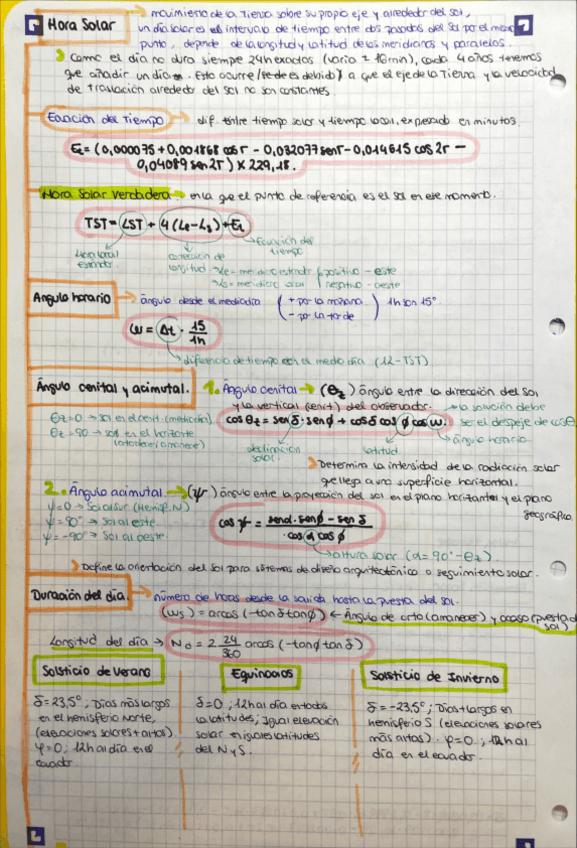 Hora Solar → movimiento de la Tierra sobre su propio eje y alrededor del sol,
un día solar es el intervalo de tiempo entre dos pasados del Sol por el mismo
punto, depende de la longitud y latitud de los meridianos y paralelos.
Como el día no dura siempre 24h exactas (varia ± 16min), cada 4 años tenemos
que añadir un día. Esto ocurre (se debe) a que el eje de la Tierra y la velocidad
de traslación alrededor del sol no son constantes.
Ecuación del Tiempo → dif. entre tiempo solar y tiempo local, expresado en minutos.
Et = (0,000075 + 0,001868 cos Γ - 0,032077 sen Γ - 0,014615 cos 2Γ -
0,04089 sen 2Γ) × 229,18.
Hora Solar Verdadera → en la que el punto de referencia es el sol en ese momento.
TST = LST + 4 (Le - Ls) + Et
Ecuación del
tiempo
Hora local
estándar
corrección de
longitud
Le = meridiano estándar
positivo - este
negativo - oeste
Ángulo horario → ángulo desde el mediodía ( + por la mañana 1h son 15º
- por la tarde )
ω = Δt · 15/1h
diferencia de tiempo con el medio día (12-TST)
Ángulo cenital y acimutal.
1. Ángulo cenital → (θz) ángulo entre la dirección del Sol
y la vertical (cenit) del observador. → la solución debe
θz = 0 → sol en el cenit (mediodía) cos θz = sen δ · sen φ + cos δ cos φ cos ω. ser el despeje de cos θ
θz = 90 → sol en el horizonte
(atardecer/amanecer)
declinación
solar
latitud
ángulo horario
Determina la intensidad de la radiación solar
que llega a una superficie horizontal.
2. Ángulo acimutal → (ψ) ángulo entre la proyección del sol en el plano horizontal y el plano
geográfico.
ψ = 0 → Sol al sur (Hemisf. N)
ψ = 90º → Sol al este
ψ = -90º → Sol al oeste
cos ψ = sen α · sen φ - sen δ / · cos α cos φ
altura solar (α = 90º - θz)
Define la orientación del Sol para sistemas de diseño arquitectónico o seguimiento solar.
Duración del día. → número de horas desde la salida hasta la puesta del sol.
(ωs) = arcos (-tan δ tan φ) ← Ángulo de orto (amanecer) y ocaso (puesta de
sol)
Longitud del día → N0 = 2 24/360 arcos (-tan φ tan δ)
Solsticio de Verano
δ = 23,5º; Días más largos
en el hemisferio Norte,
(elevaciones solares + altas)
φ = 0; 12h al día en el
ecuador.
Equinoccios
δ = 0; 12h al día en todas
las latitudes; Igual elevación
solar en iguales latitudes
del N y S.
Solsticio de Invierno
δ = -23,5º; Días + largos en
hemisferio S (elevaciones solares
más altas). φ = 0; 12h al
día en el ecuador.